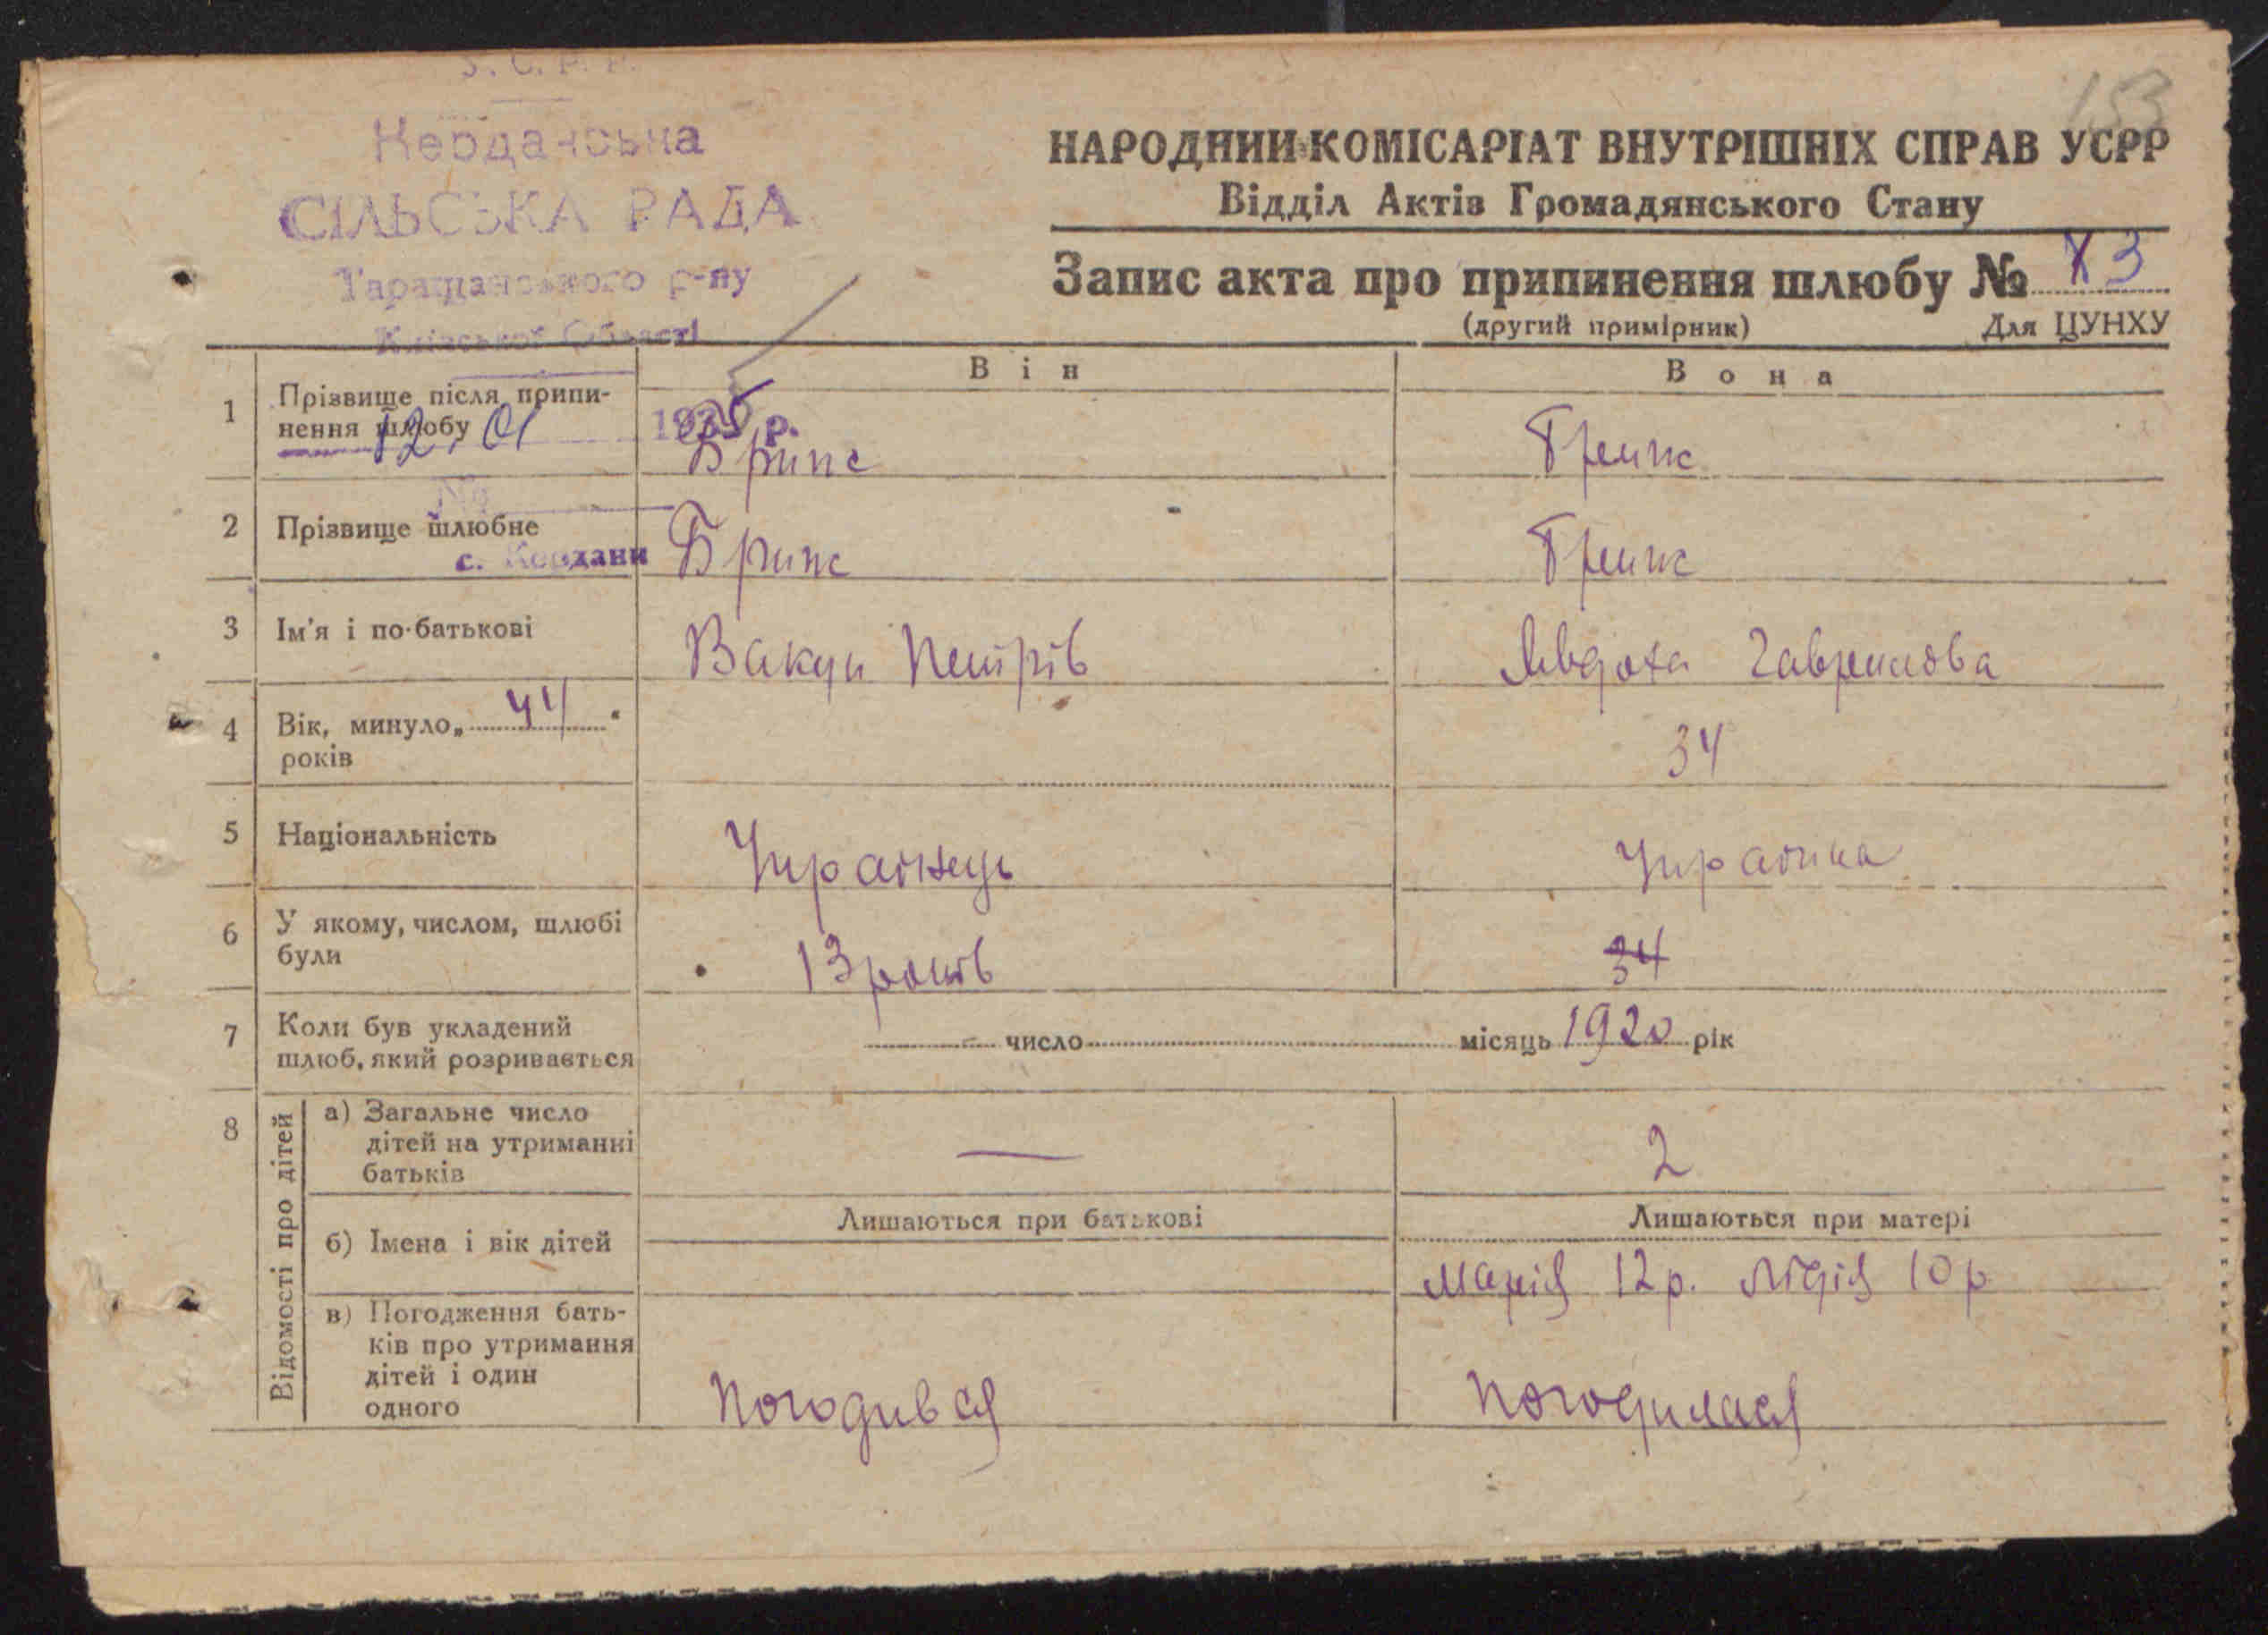 У. С. Р. Р.
153
Керданська
СІЛЬСЬКА РАДА
Таращанського р-ну
Київської Області
НАРОДНИЙ КОМІСАРІАТ ВНУТРІШНІХ СПРАВ УСРР
Відділ Актів Громадянського Стану
Запис акта про припинення шлюбу № 3
(другий примірник) Для ЦУНХУ
Він Вона
1 Прізвище після припинення шлюбу
12. 01 1935 р.
№
2 Прізвище шлюбне
с. Кердани
3 Ім'я і по-батькові Вакун Петрів Явдоха Гаврилова
4 Вік, минуло „44“ років 34
5 Національність Українець Українка
6 У якому, числом, шлюбі були 13 років 34
7 Коли був укладений шлюб, який розривається число місяць 1920 рік
8 Відомості про дітей
а) Загальне число дітей на утриманні батьків — 2
б) Імена і вік дітей
Лишаються при батькові Лишаються при матері
Марія 12 р. Лідія 10 р
в) Погодження батьків про утримання дітей і один одного
Погодився Погодилася